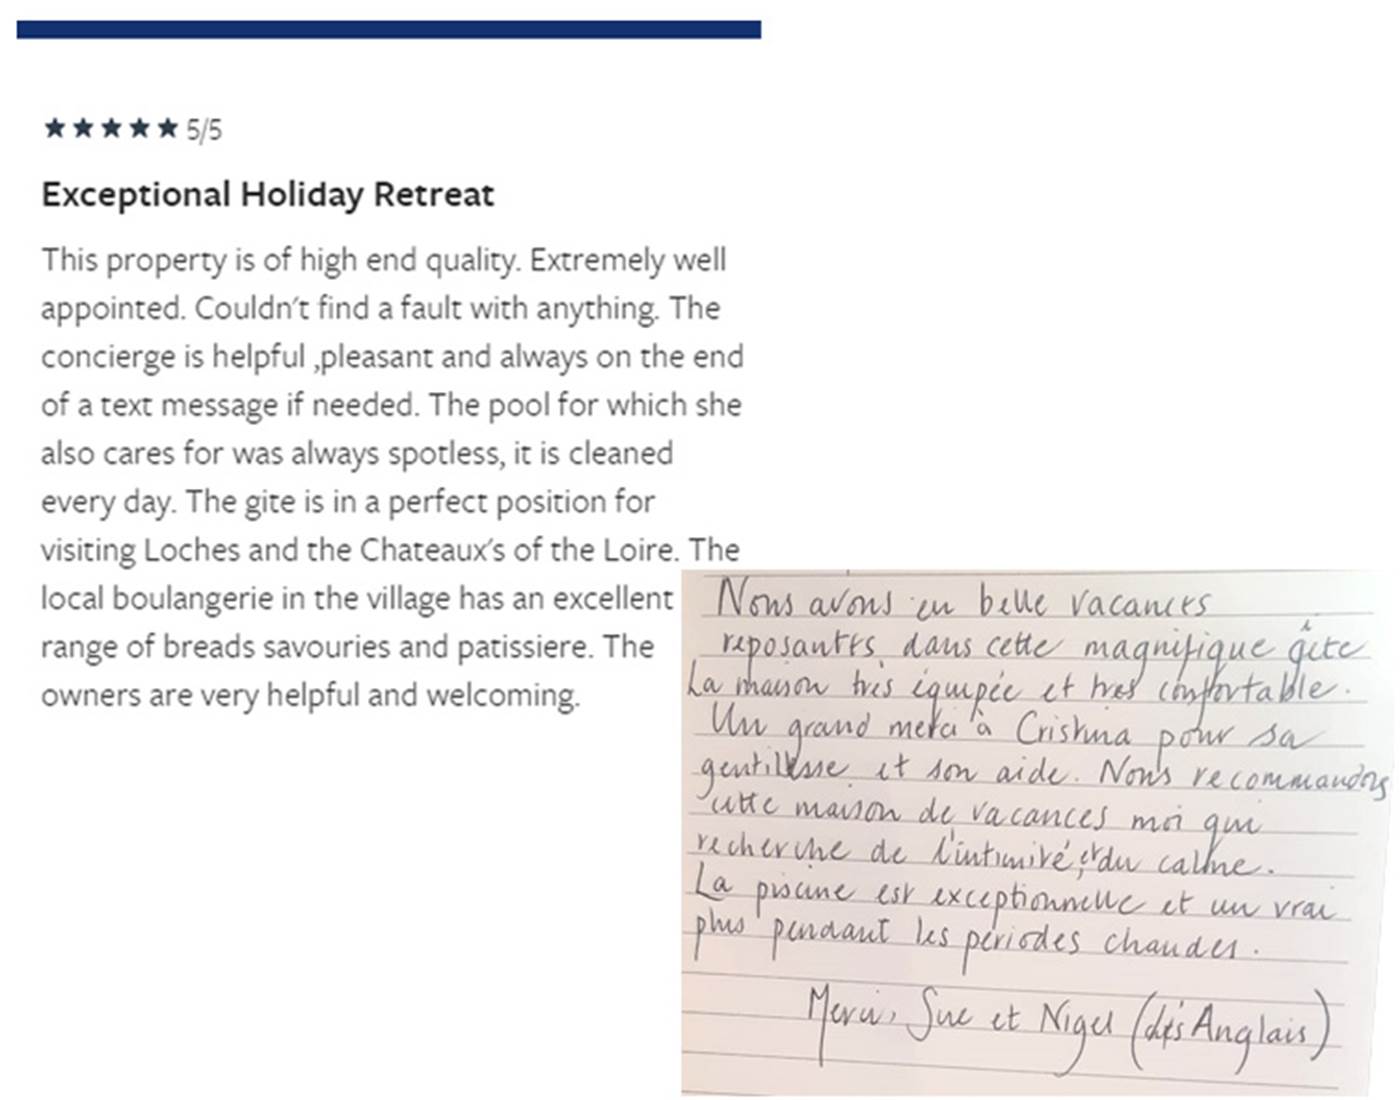 ★★★★★ 5/5
Exceptional Holiday Retreat
This property is of high end quality. Extremely well
appointed. Couldn't find a fault with anything. The
concierge is helpful ,pleasant and always on the end
of a text message if needed. The pool for which she
also cares for was always spotless, it is cleaned
every day. The gite is in a perfect position for
visiting Loches and the Chateaux's of the Loire. The
local boulangerie in the village has an excellent
range of breads savouries and patissiere. The
owners are very helpful and welcoming.
Nous avons eu belle vacances
reposantes dans cette magnifique gîte
La maison très équipée et très confortable.
Un grand merci à Cristina pour sa
gentillesse et son aide. Nous recommandons
cette maison de vacances moi qui
recherche de l'intimité, et du calme.
La piscine est exceptionnelle et un vrai
plus pendant les periodes chaudes.
Merci, Sue et Nigel (dés Anglais)